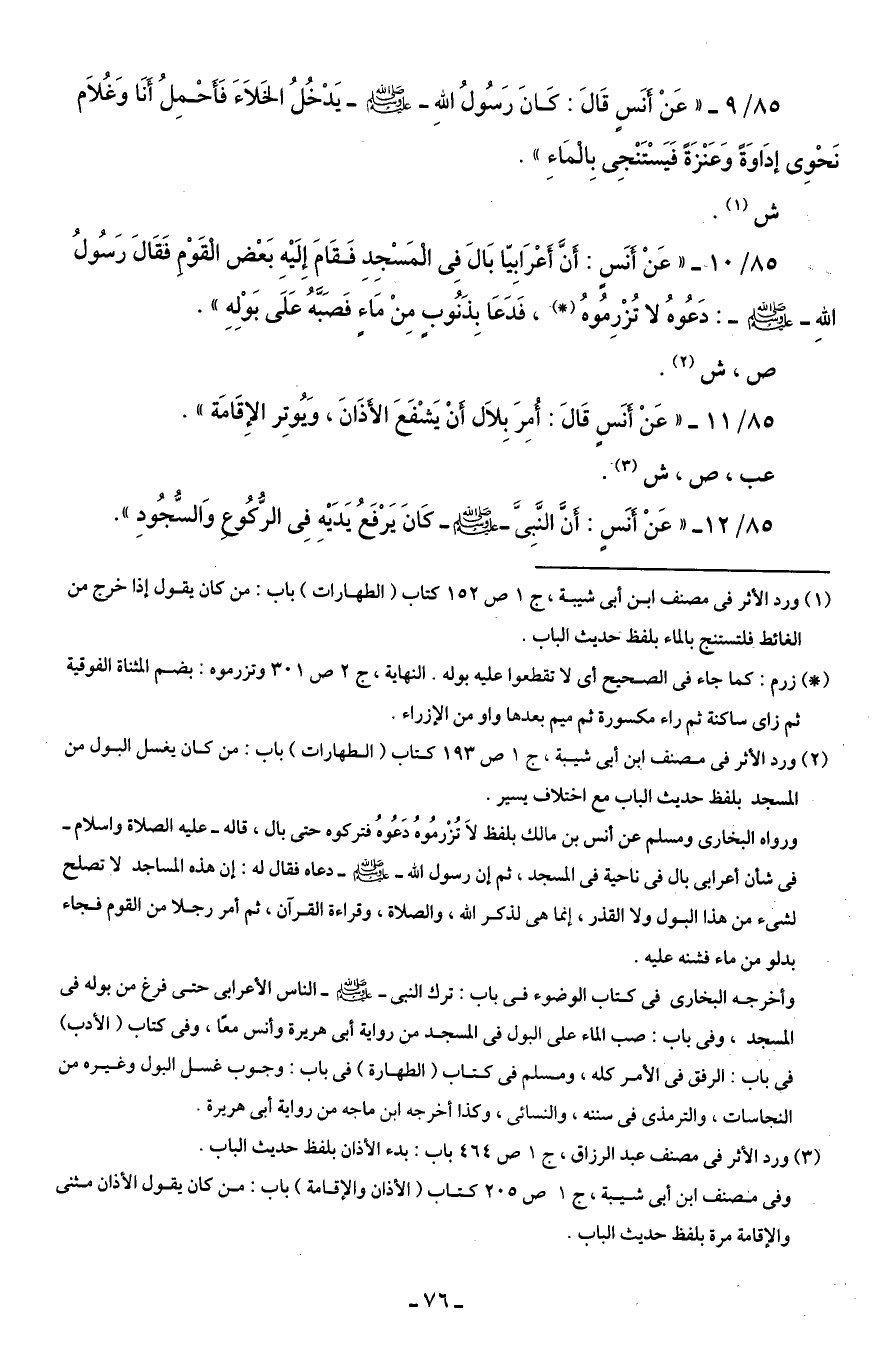 ٨٥/ ٩ ـ « عَنْ أَنَسٍ قَالَ : كَـانَ رَسُولُ اللهِ ـ ﷺ ـ يَدْخُلُ الْخَلاَءَ فَأَحْـمِلُ أَنَا وَغُلاَم
نَحْوِى إِدَاوَةً وَعَنْزَةً فَيَسْتَنْجِى بِالْمَاءِ » .
ش (١) .
٨٥/ ١٠ ـ « عَنْ أَنَسٍ : أَنَّ أَعْرَابِيّا بَالَ فِى الْمَسْجِدِ فَـقَامَ إِلَيْهِ بَعْض الْقَوْمِ فَقَالَ رَسُولُ
اللهِ ـ ﷺ ـ : دَعُوهُ لا تُزْرِمُوهُ (*) ، فَدَعَا بِذَنُوبٍ مِنْ مَاءٍ فَصَبَّهُ عَلَى بَوْلِهِ » .
ص ، ش (٢) .
٨٥/ ١١ ـ « عَنْ أَنَسٍ قَالَ : أُمِرَ بِلاَل أَنْ يَشْفَعَ الأَذَانَ ، وَيُوتِر الإِقَامَة » .
عب ، ص ، ش (٣) .
٨٥/ ١٢ـ « عَنْ أَنَسٍ : أَنَّ النَّبِىَّ ـ ﷺ ـ كَانَ يَرْفَعُ يَدَيْهِ فِى الرُّكُوعِ وَالسُّجُودِ ».
(١) ورد الأثر فى مصنف ابـن أبى شيبـة ، ج ١ ص ١٥٢ كتاب ( الطهارات ) باب : من كان يقول إذا خرج من
الغائط فلتستنج بالماء بلفظ حديث الباب .
(*) زرم : كما جاء فى الصـحيح أى لا تقطعوا عليه بوله . النهاية ، ج ٢ ص ٣٠١ وتزرموه : بضـم المثناة الفوقية
ثم زاى ساكنة ثم راء مكسورة ثم ميم بعدها واو من الإزراء .
(٢) ورد الأثر فى مـصنف ابن أبى شيبة ، ج ١ ص ١٩٣ كـتاب ( الـطهارات ) باب : من كـان يغسل البـول من
المسجد بلفظ حديث الباب مع اختلاف يسير .
ورواه البخارى ومسلم عن أنس بن مالك بلفظ لاَ تُزْرِمُوهُ دَعُوهُ فتركوه حتى بال ، قاله ـ عليه الصلاة واسلام ـ
فى شأن أعرابى بال فى ناحية فى المسجد ، ثم إن رسول الله ـ ﷺ ـ دعاه فقال له : إن هذه المساجد لا تصلح
لشىء من هذا البول ولا القذر ، إنما هى لذكـر الله ، والصلاة ، وقراءة القـرآن ، ثم أمر رجـلا من القوم فـجاء
بدلو من ماء فشنه عليه .
وأخرجـه البخارى فى كـتاب الوضوء فـى باب : ترك النبى ـ ﷺ ـ الناس الأعرابى حتـى فرغ من بوله فى
المسجد ، وفى باب : صب الماء على البول فى المسجـد من رواية أبى هريرة وأنس معًا ، وفى كتاب ( الأدب)
فى باب : الرفق فى الأمـر كله ، ومـسلم فى كـتـاب ( الطهارة ) فى باب : وجـوب غسـل البول وغيـره من
النجاسات ، والترمذى فى سننه ، والنسائى ، وكذا أخرجه ابن ماجه من رواية أبى هريرة .
(٣) ورد الأثر فى مصنف عبد الرزاق ، ج ١ ص ٤٦٤ باب : بدء الأذان بلفظ حديث الباب .
وفى مـصنف ابن أبى شـيبـة ، ج ١ ص ٢٠٥ كتـاب ( الأذان والإقـامة ) باب : مـن كان يقول الأذان مـثنى
والإقامة مرة بلفظ حديث الباب .
ـ ٧٦ ـ